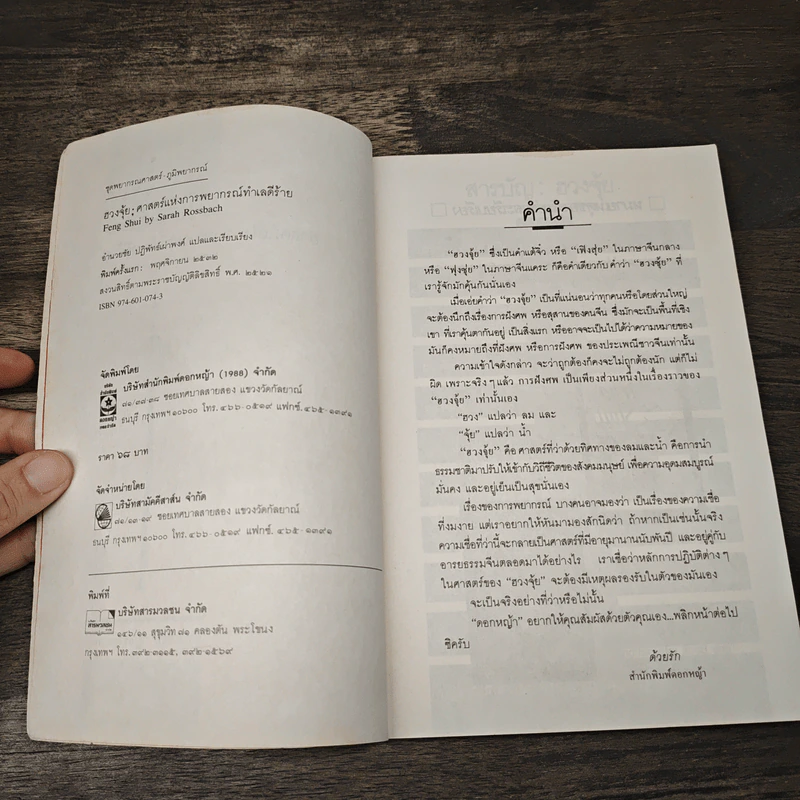 ชุดพยากรณศาสตร์・ภูมิพยากรณ์
ฮวงจุ้ย: ศาสตร์แห่งการพยากรณ์ทำเลดีร้าย
Feng Shui by Sarah Rossbach
อำนวยชัย ปฏิพัทธ์เผ่าพงศ์ แปลและเรียบเรียง
พิมพ์ครั้งแรก: พฤศจิกายน ๒๕๓๒
สงวนสิทธิ์ตามพระราชบัญญัติลิขสิทธิ์ พ.ศ. ๒๕๒๑
ISBN 974-601-074-3
จัดพิมพ์โดย
บริษัทสำนักพิมพ์ดอกหญ้า (1988) จำกัด
๘๑/๓๗-๓๘ ซอยเทศบาลสายสอง แขวงวัดกัลยาณ์
ธนบุรี กรุงเทพฯ ๑๐๖๐๐ โทร. ๔๖๖-๐๕๑๙ แฟกซ์. ๔๖๕-๑๓๙๑
ราคา ๖๘ บาท
จัดจำหน่ายโดย
บริษัทสามัคคีสาส์น จำกัด
๘๑/๑๓-๑๙ ซอยเทศบาลสายสอง แขวงวัดกัลยาณ์
ธนบุรี กรุงเทพฯ ๑๐๖๐๐ โทร. ๔๖๖-๐๕๑๙ แฟกซ์. ๔๖๕-๑๓๙๑
พิมพ์ที่
บริษัทสารมวลชน จำกัด
๑๔๖/๑๑ สุขุมวิท ๗๑ คลองตัน พระโขนง
กรุงเทพฯ โทร. ๓๙๒-๓๑๑๕, ๓๙๒-๑๕๖๙
คำนำ
“ฮวงจุ้ย” ซึ่งเป็นคำแต้จิ๋ว หรือ “เฟิงสุ่ย” ในภาษาจีนกลาง
หรือ “ฟุ่งซุ่ย” ในภาษาจีนแคระ ก็คือคำเดียวกับ คำว่า “ฮวงซุ้ย” ที่
เรารู้จักมักคุ้นกันนั่นเอง
เมื่อเอ่ยคำว่า “ฮวงจุ้ย” เป็นที่แน่นอนว่าทุกคนหรือโดยส่วนใหญ่
จะต้องนึกถึงเรื่องการฝังศพ หรือสุสานของคนจีน ซึ่งมักจะเป็นพื้นที่เชิง
เขา ที่เราคุ้นตากันอยู่ เป็นสิ่งแรก หรืออาจจะเป็นไปได้ว่าความหมายของ
มันก็คงหมายถึงที่ฝังศพ หรือการฝังศพ ของประเพณีชาวจีนเท่านั้น
ความเข้าใจดังกล่าว จะว่าถูกต้องก็คงจะไม่ถูกต้องนัก แต่ก็ไม่
ผิด เพราะจริง ๆ แล้ว การฝังศพ เป็นเพียงส่วนหนึ่งในเรื่องราวของ
“ฮวงจุ้ย” เท่านั้นเอง
“ฮวง” แปลว่า ลม และ
“จุ้ย” แปลว่า น้ำ
“ฮวงจุ้ย” คือ ศาสตร์ที่ว่าด้วยทิศทางของลมและน้ำ คือการนำ
ธรรมชาติมาปรับให้เข้ากับวิถีชีวิตของสังคมมนุษย์ เพื่อความอุดมสมบูรณ์
มั่นคง และอยู่เย็นเป็นสุขนั่นเอง
เรื่องของการพยากรณ์ บางคนอาจมองว่า เป็นเรื่องของความเชื่อ
ที่งมงาย แต่เราอยากให้หันมามองสักนิดว่า ถ้าหากเป็นเช่นนั้นจริง
ความเชื่อที่ว่านี้จะกลายเป็นศาสตร์ที่มีอายุมานานนับพันปี และอยู่คู่กับ
อารยธรรมจีนตลอดมาได้อย่างไร เราเชื่อว่าหลักการปฏิบัติต่าง ๆ
ในศาสตร์ของ “ฮวงจุ้ย” จะต้องมีเหตุผลรองรับในตัวของมันเอง
จะเป็นจริงอย่างที่ว่าหรือไม่นั้น
“ดอกหญ้า” อยากให้คุณสัมผัสด้วยตัวคุณเอง...พลิกหน้าต่อไป
ซิครับ
ด้วยรัก
สำนักพิมพ์ดอกหญ้า